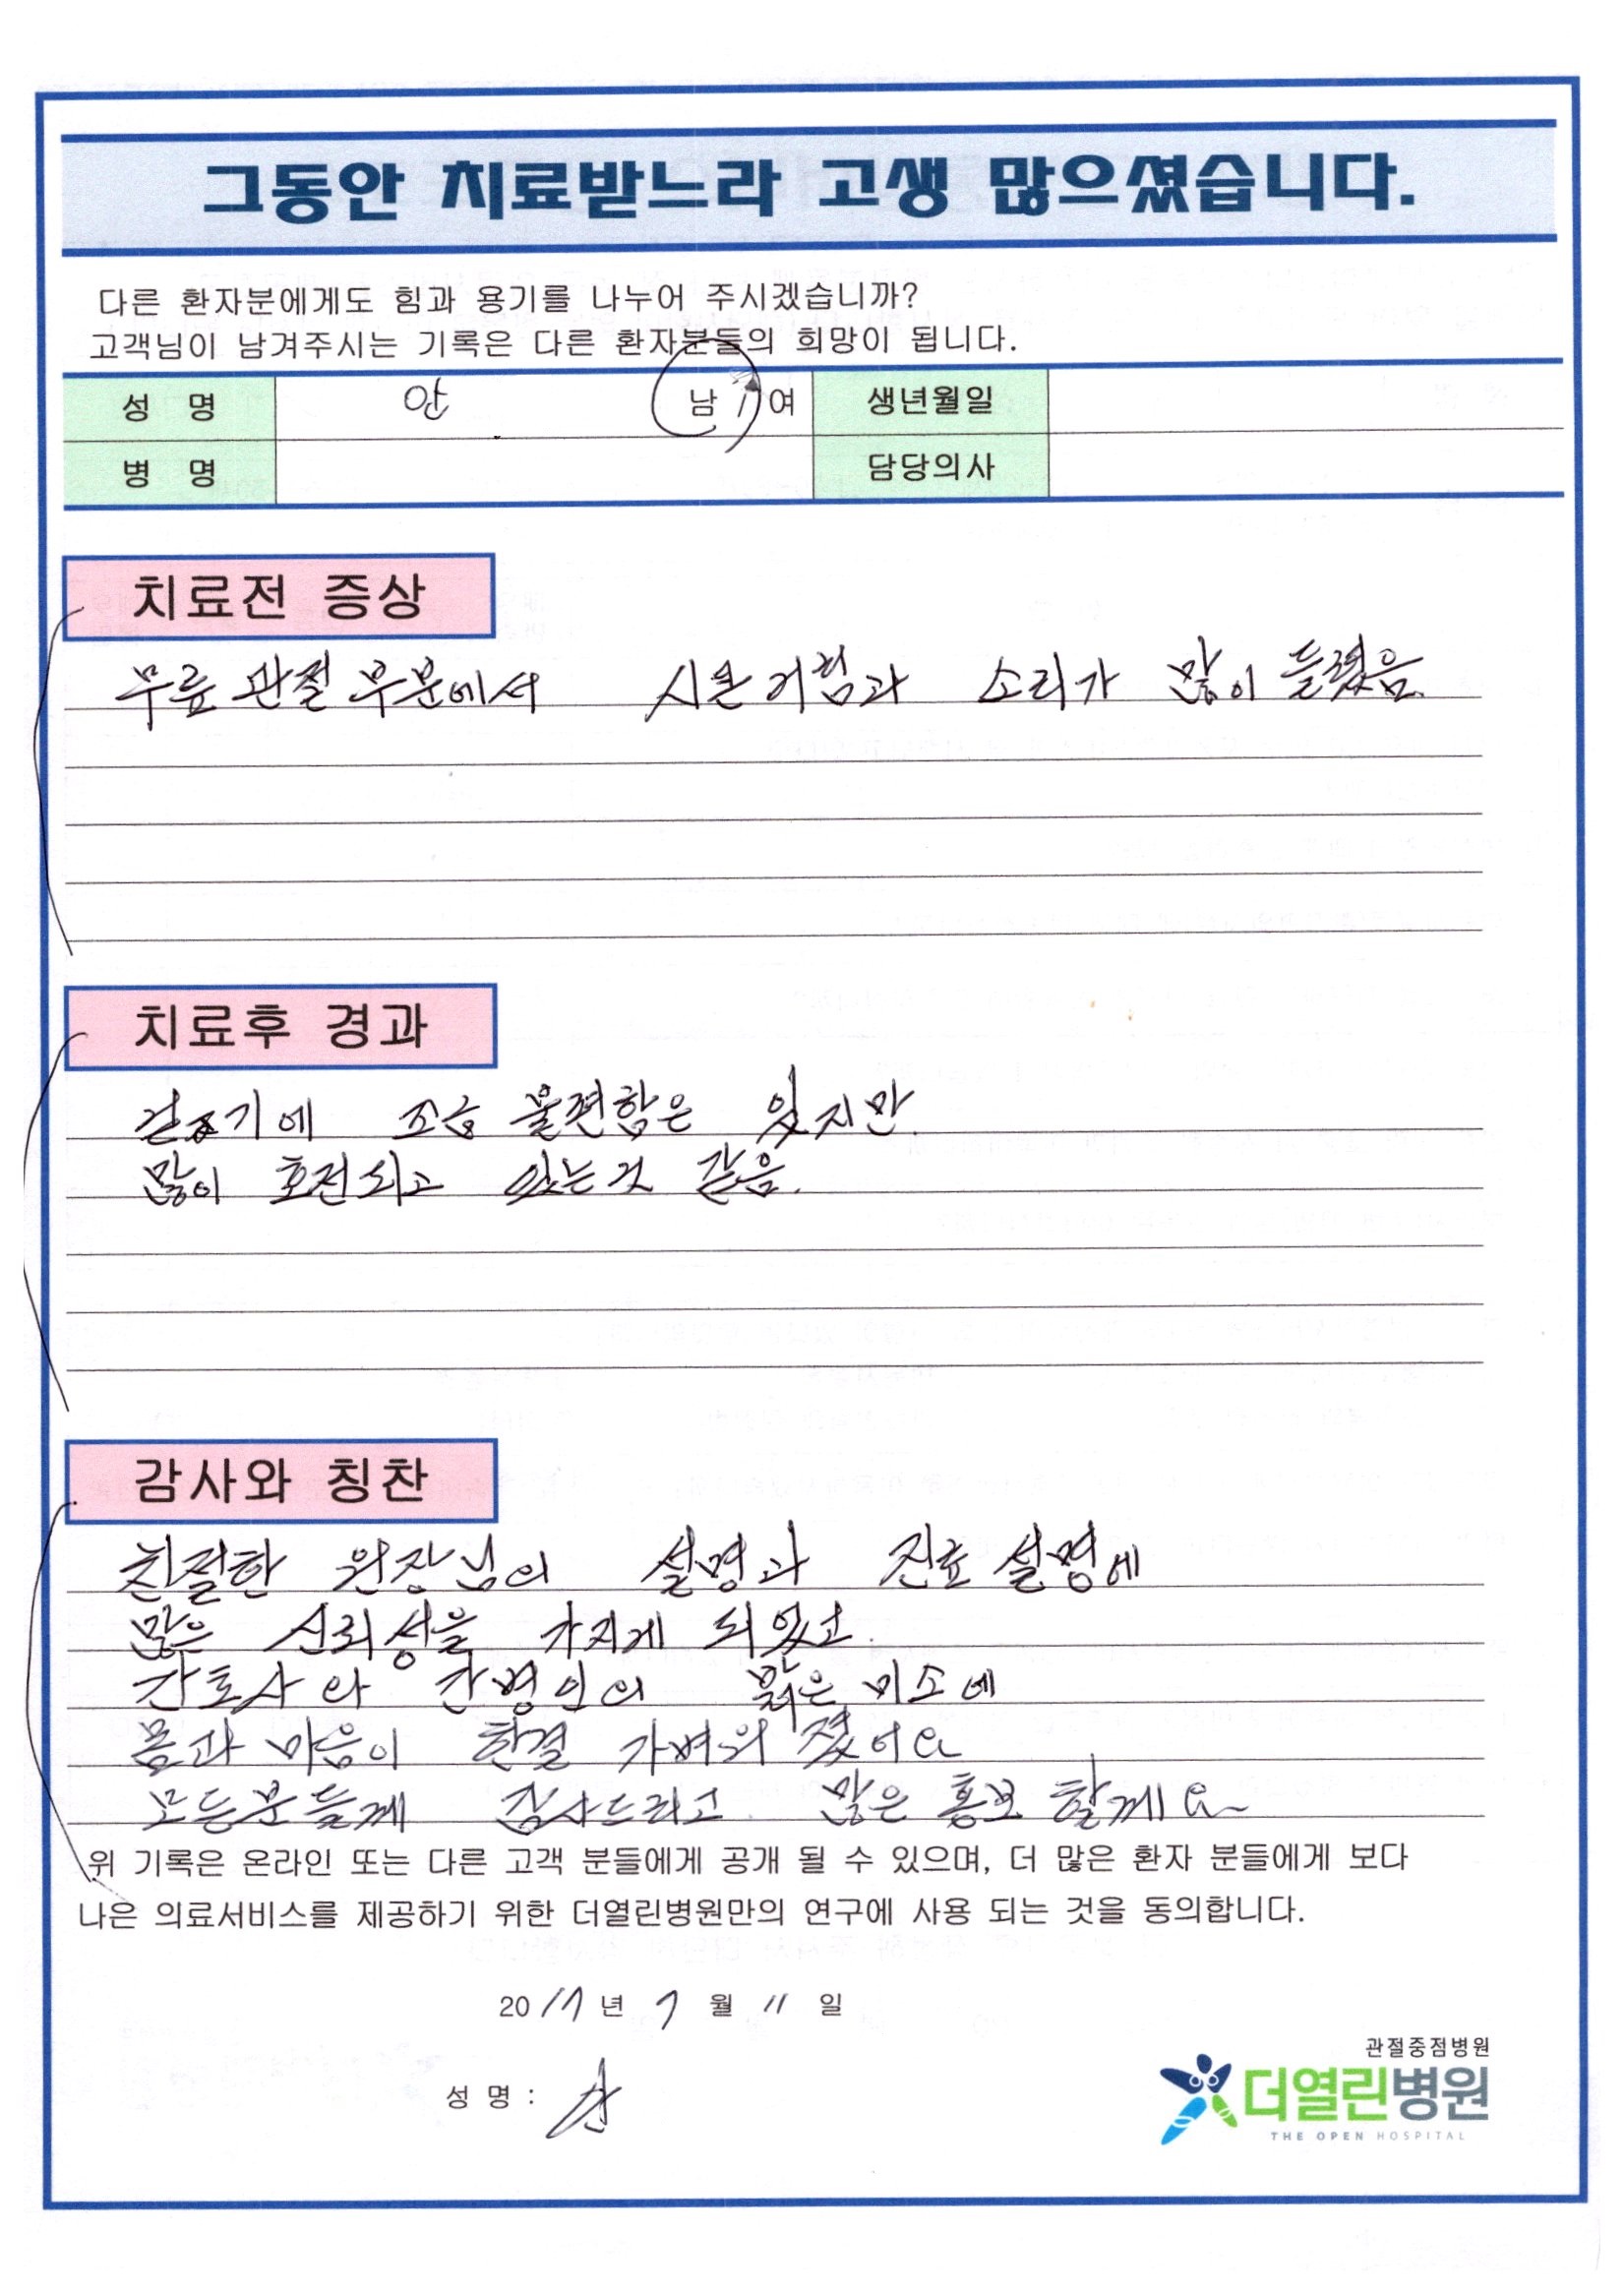 그동안 치료받느라 고생 많으셨습니다.
다른 환자분에게도 힘과 용기를 나누어 주시겠습니까?
고객님이 남겨주시는 기록은 다른 환자분들의 희망이 됩니다.
성 명 안 남 / 여 생년월일
병 명 담당의사
치료전 증상
무릎 관절 부분에서 시큰거림과 소리가 많이 들렸음.
치료후 경과
걷기에 조금 불편함은 있지만
많이 호전되고 있는것 같음.
감사와 칭찬
친절한 원장님의 설명과 진료 설명에
많은 신뢰성을 가지게 되었고
간호사와 간병인의 맑은 미소에
몸과 마음이 한결 가벼워 졌어요
모든분들께 감사드리고 많은 홍보 할께요~
위 기록은 온라인 또는 다른 고객 분들에게 공개 될 수 있으며, 더 많은 환자 분들에게 보다
나은 의료서비스를 제공하기 위한 더열린병원만의 연구에 사용 되는 것을 동의합니다.
2017년 7월 11일
성 명 :
관절중점병원
더열린병원
THE OPEN HOSPITAL